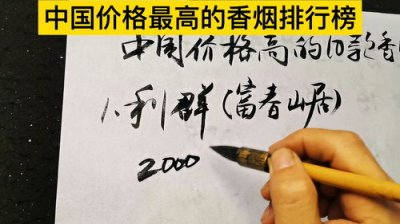 中国价格最高的香烟排行榜
中国价格高的10款香
1.利群(富春山居)
2000